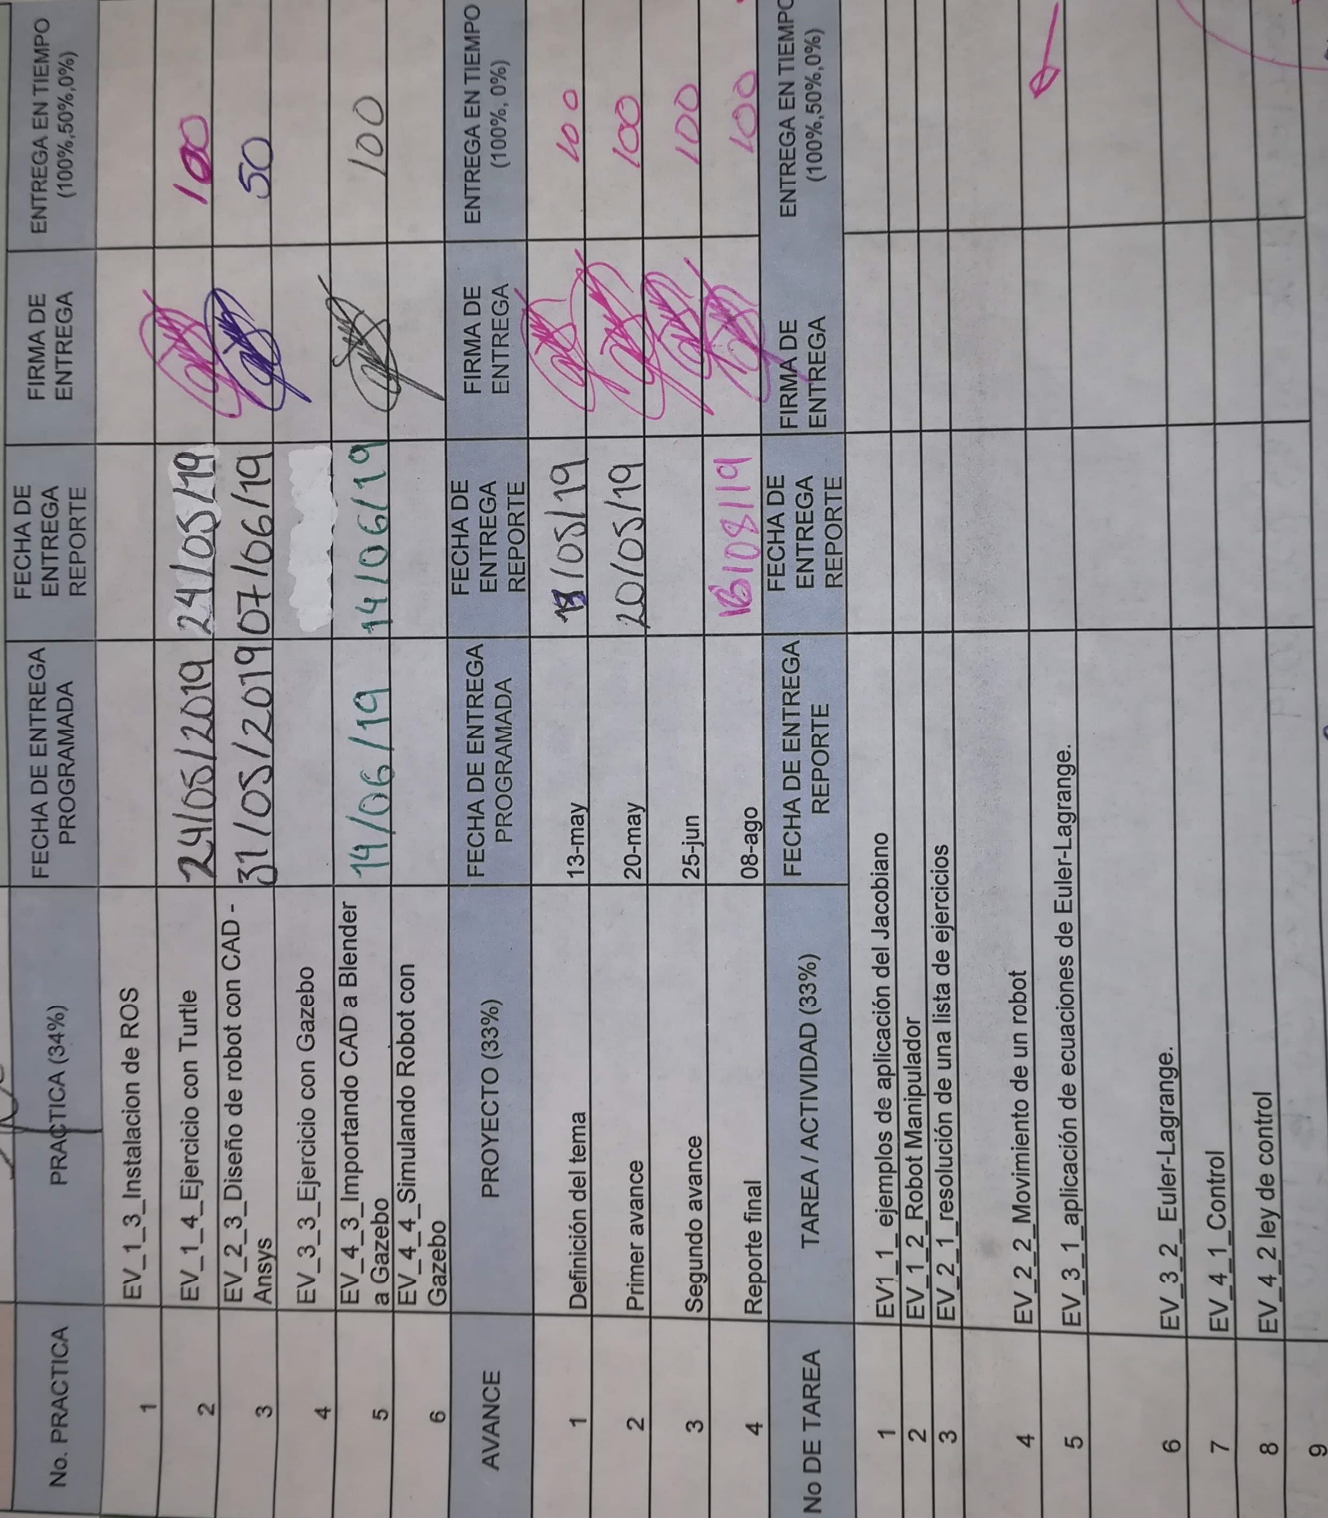 No. PRACTICA
PRACTICA (34%)
FECHA DE ENTREGA
PROGRAMADA
FECHA DE
ENTREGA
REPORTE
FIRMA DE
ENTREGA
ENTREGA EN TIEMPO
(100%,50%,0%)
1
EV_1_3_Instalacion de ROS
2
EV_1_4_Ejercicio con Turtle
24/05/2019
24/05/19
100
3
EV_2_3_Diseño de robot con CAD -
Ansys
31/05/2019
07/06/19
50
4
EV_3_3_Ejercicio con Gazebo
5
EV_4_3_Importando CAD a Blender
a Gazebo
14/06/19
14/06/19
100
6
EV_4_4_Simulando Robot con
Gazebo
AVANCE
PROYECTO (33%)
FECHA DE ENTREGA
PROGRAMADA
FECHA DE
ENTREGA
REPORTE
FIRMA DE
ENTREGA
ENTREGA EN TIEMPO
(100%, 0%)
1
Definición del tema
13-may
/05/19
100
2
Primer avance
20-may
20/05/19
100
3
Segundo avance
25-jun
100
4
Reporte final
08-ago
/08/19
100
No DE TAREA
TAREA / ACTIVIDAD (33%)
FECHA DE ENTREGA
REPORTE
FECHA DE
ENTREGA
REPORTE
FIRMA DE
ENTREGA
ENTREGA EN TIEMPO
(100%,50%,0%)
1
EV1_1_ ejemplos de aplicación del Jacobiano
2
EV_1_2_Robot Manipulador
3
EV_2_1_resolución de una lista de ejercicios
4
EV_2_2_Movimiento de un robot
5
EV_3_1_aplicación de ecuaciones de Euler-Lagrange.
6
EV_3_2_ Euler-Lagrange.
7
EV_4_1_Control
8
EV_4_2 ley de control
9